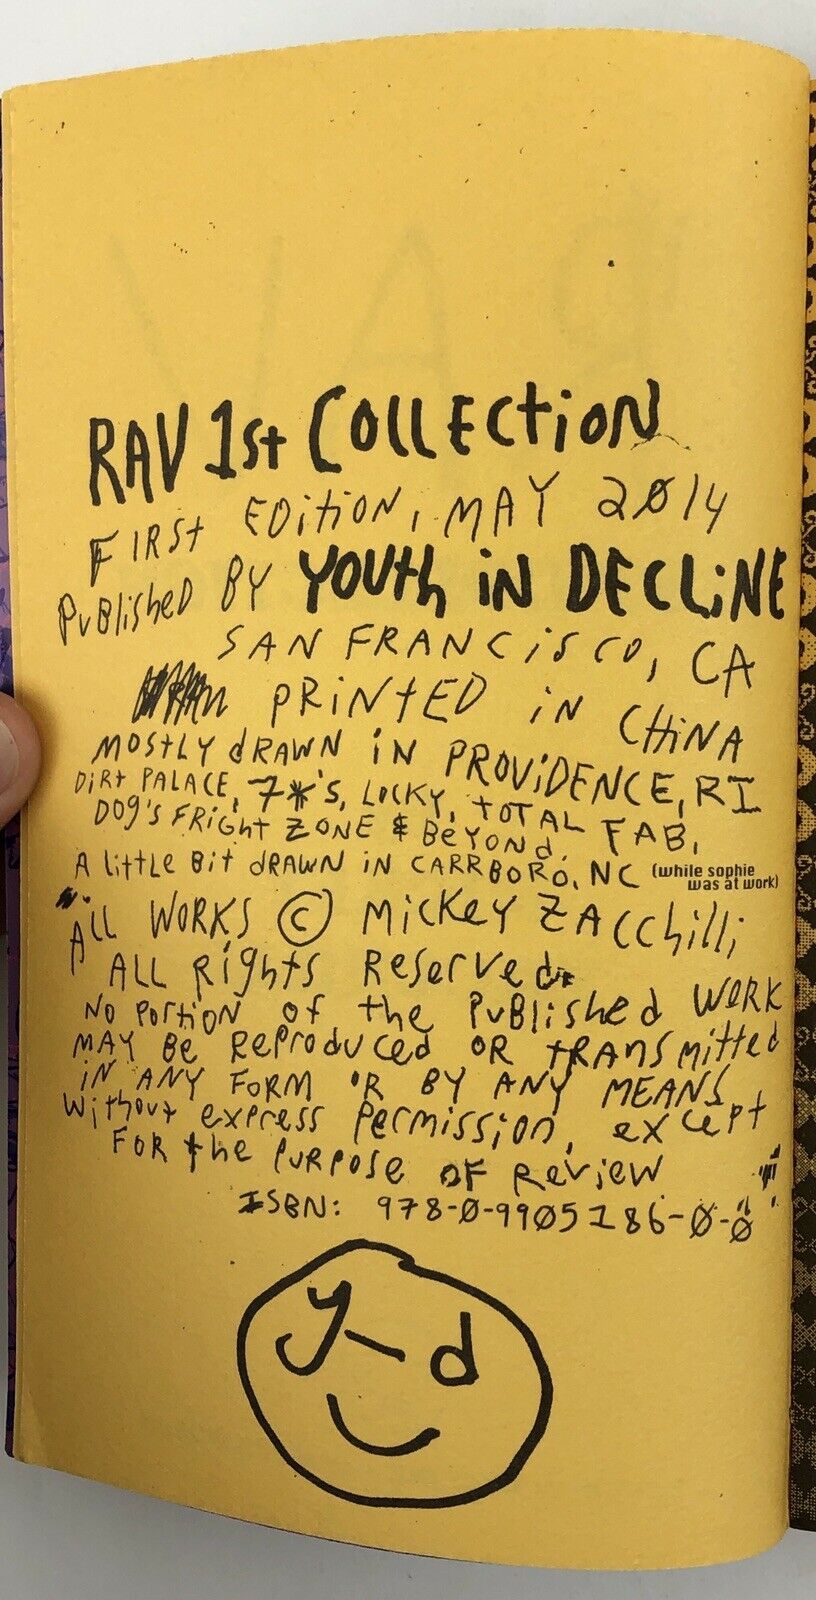 RAV 1st COllECtioN
FIRSt EDitiON, MAY 2014
PuBlisheD BY YOUth iN DECLiNE
SAN FRANCisCO, CA
PRiNtED iN CHiNA
MOStLY dRAWN iN PROViDENCE, RI
DiRt PALACE, 7*'S, LOCKY, tOTAL FAB,
DOg'S FRight ZONE & BeYOND.
A littlE Bit dRAWN iN CARRBORO, NC (while sophie was at work)
All WORKS © MicKeY ZACChilli
All Rights Reserved.
NO PORtiON of the PuBlished WORK
MAY Be Reproduced OR tRANSmitted
iN ANY FORM OR BY ANY MEANS
Without express Permission, except
FOR the PuRPOSE OF Review
ISBN: 978-0-9905186-0-0
y-d